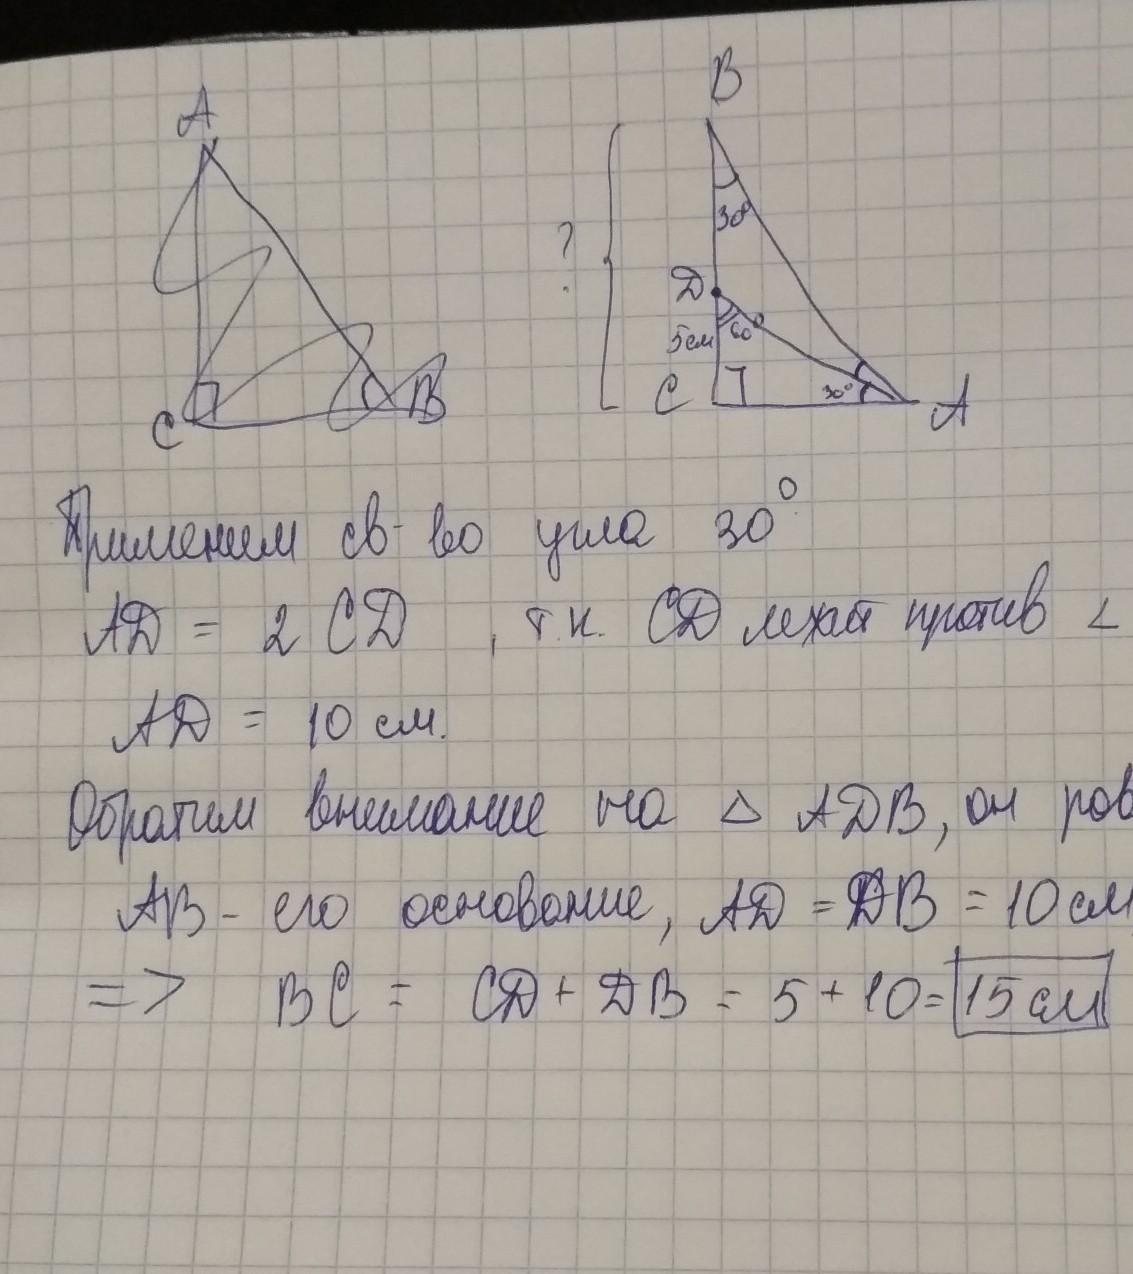 A
C
B
B
?
30°
D
5см
60°
C
30°
A
Применим св-во угла 30°
AD = 2 CD , т.к. CD лежат против <
AD = 10 см.
Обратим внимание на △ ADB, он ров
AB - его основание, AD = DB = 10 см
=> BC = CD + DB = 5 + 10 = 15 см